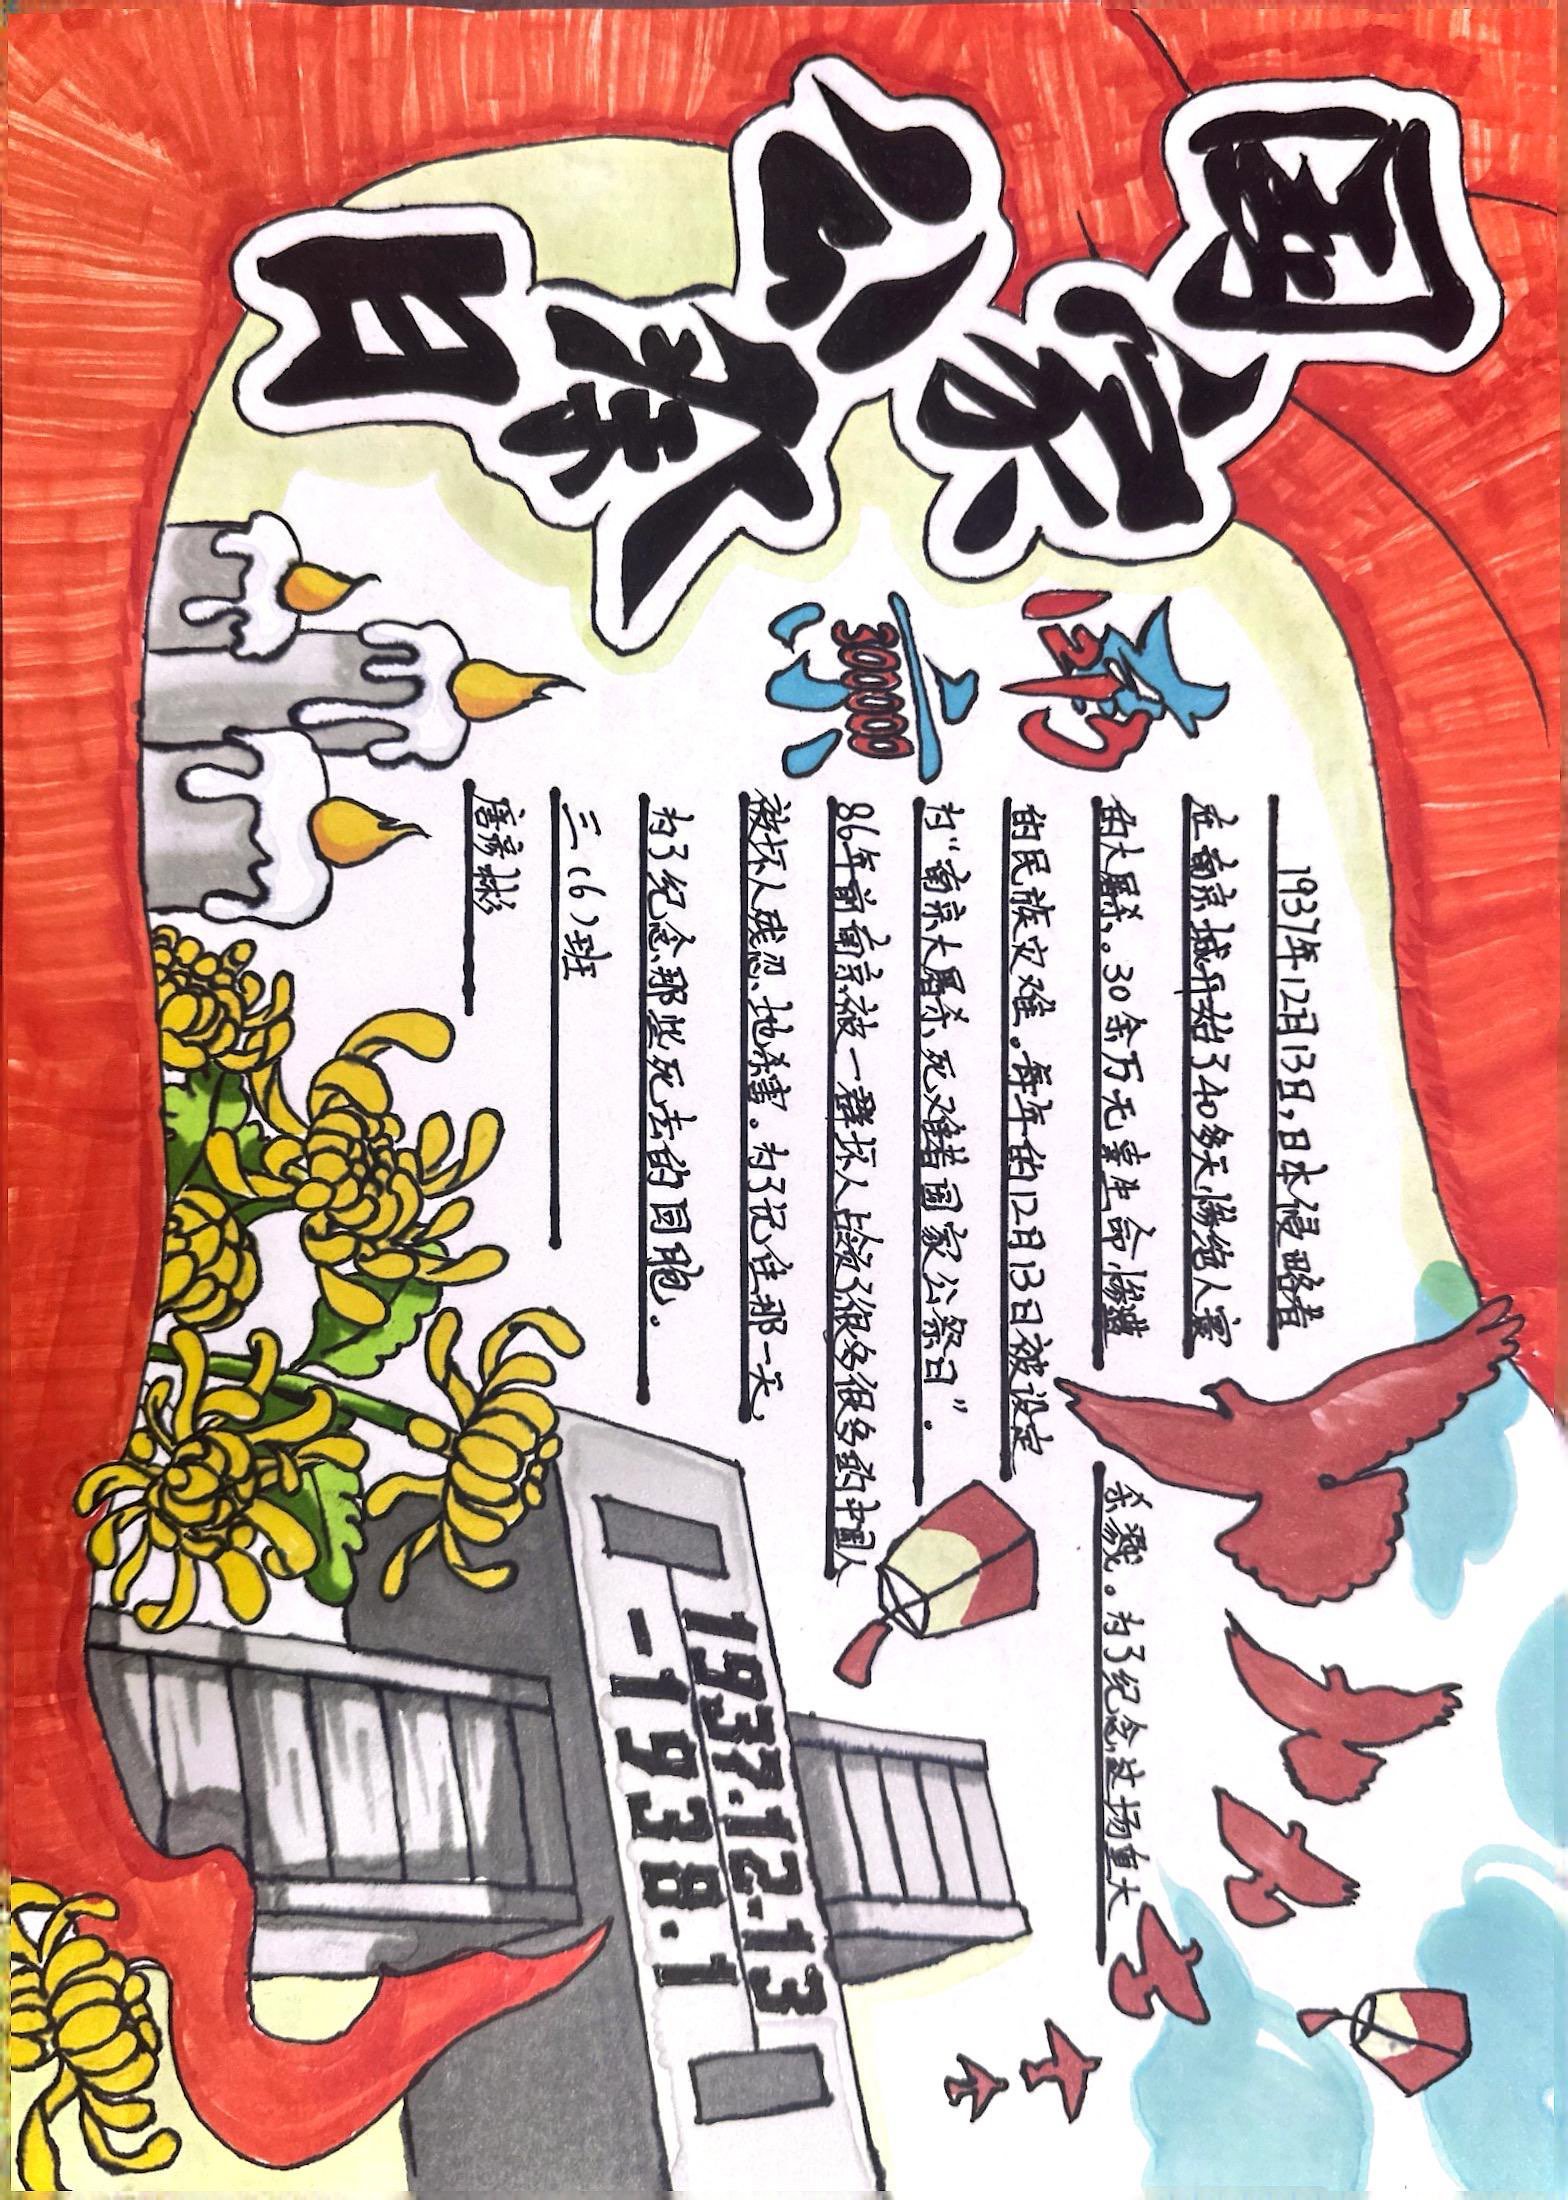 国家公祭日
300000
1937年12月13日，日本侵略者
在南京城开始了40多天惨绝人寰
的大屠杀。30余万无辜生命惨遭
杀戮。为了纪念这场重大
的民族灾难。每年的12月13日被设定
为“南京大屠杀死难者国家公祭日”.
86年前南京被一群坏人占领了很多很多的中国人
被坏人残忍地杀害。为了记住那一天，
为了纪念那些死去的同胞.
三(6)班
唐彦彬
1937.12.13
-1938.1